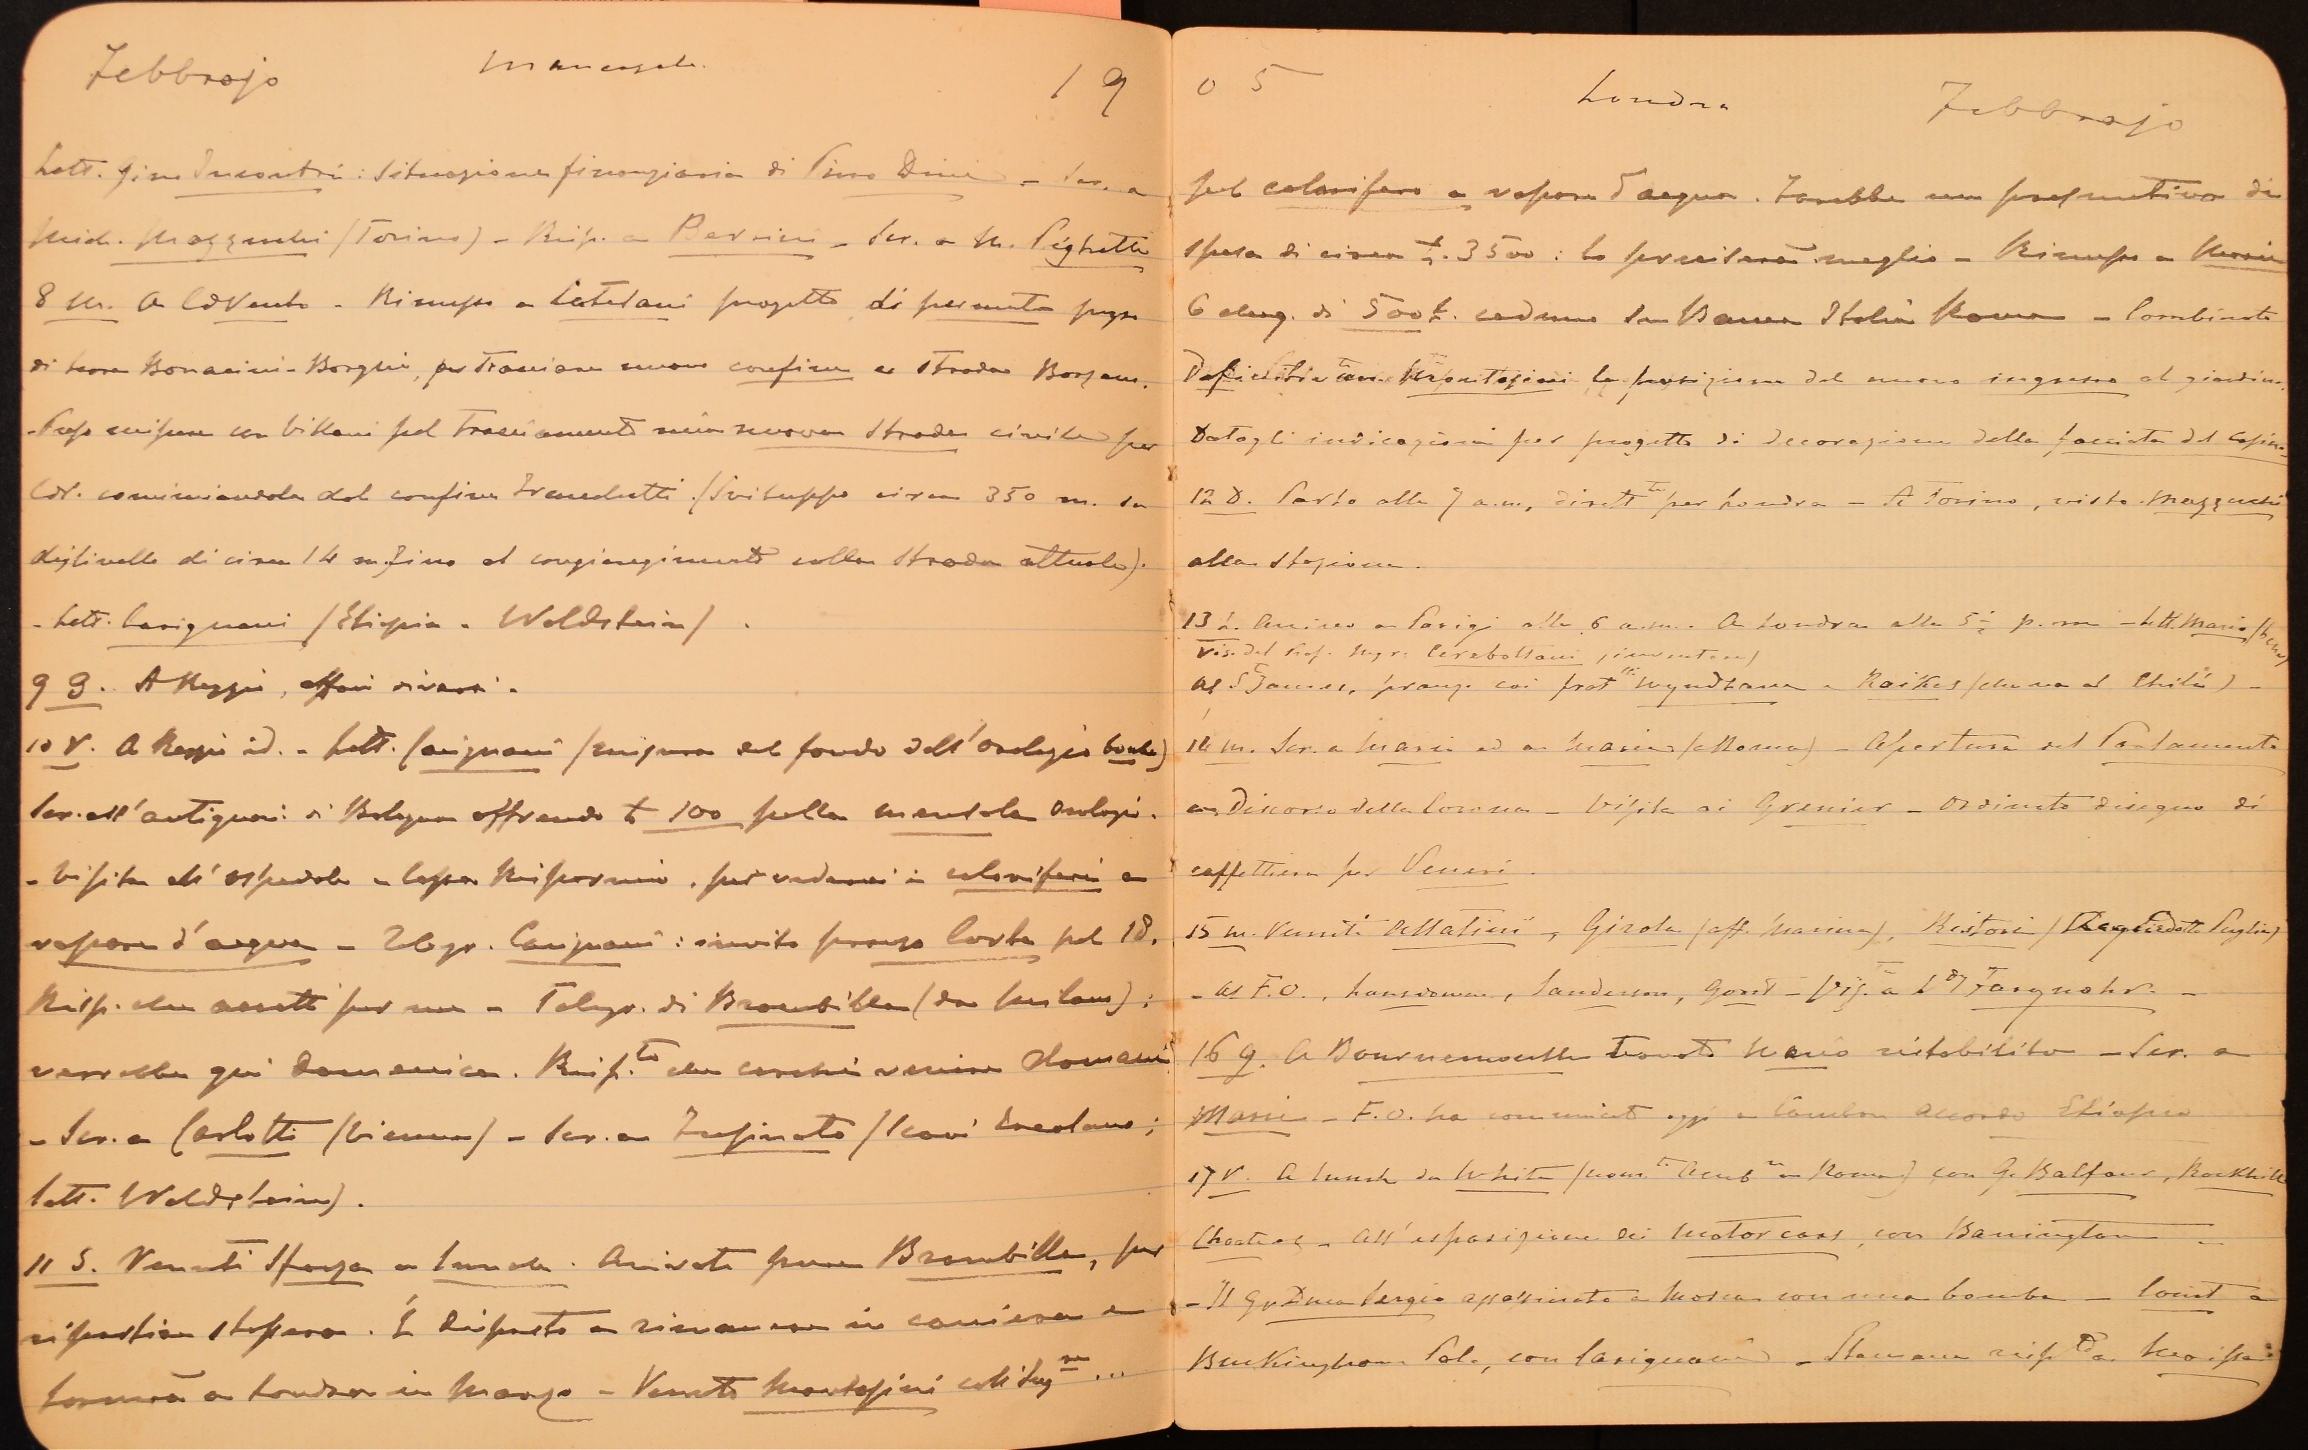 Febbrajo Mancasale. 19
Lett. Gino Incontri: situazione finanziaria di Piero Dini - Scr. a
Mich. Mazzucchi (Torino) - Risp. a Bernini - Scr. a M. Pighetti
8 M. A Cdvento - Rimesso a Catelani progetto di permuta pezzo
di terra Bonacini-Borghi, per tracciare nuovo confine a strada Borzan.
- Preso misure con Villani pel tracciamento nuova strada civile per
Cdv. cominciandola dal confine Franchetti (Sviluppo circa 350 m. su
dislivello di circa 14 m. fino al congiungimento colla strada attuale).
- Lett. Carignani (Etiopia - Waldstein).
9 G. A Reggio, affari diversi.
10 V. A Reggio id. - Lett. Carignani (misura del fondo dell'orologio boule)
Scr. all'antiquari di Bologna offrendo £ 100 pella mensola orologi.
- Visita all'ospedale e Cassa Risparmio, per vedervi i caloriferi a
vapore d'acqua - Telegr. Carignani: invito pranzo Corte pel 18.
Risp. che accetti per me - Telegr. di Brambilla (da Milano):
verrebbe qui Domenica. Risp.to che cerchi venire domani
- Scr. a Carlotti (Vienna) - Scr. a Fusinato (Scavi Ercolano;
lett. Waldstein).
11 S. Venuti Sforza a lunch. Arrivato pure Brambilla, per
ripartire stasera. È disposto a rimanere in carriera e
tornerà a Londra in Marzo - Venuto Montessini coll'Ing.re ...
05 Londra Febbrajo
pel calorifero a vapore d'acqua. Farebbe un preventivo di
spesa di circa £. 3500: lo preciserà meglio - Rimesso a
6 cheq. di 500 £. ceduno su Banca Italia Roma - Combinato
la posizione del nuovo ingresso al giardino.
Datogli indicazioni per progetto di decorazione della facciata del Casino
12 D. Parto alle 7 a.m. dirett.te per Londra - A Torino, visto Mazzucchi
alla stazione.
13 L. Arrivo a Parigi alle 6 a.m. A Londra alle 5½ p.m - Lett. Mario
Vis. del Prof. Mgr. Cerebottani (inventore)
Al S. James, pranzo coi frat.lli Wyndham e Raikes (che va al Chilì) -
14 M. Scr. a Mario ed a Maria (a Roma) - Apertura del Parlamento
e Discorso della Corona - Visita ai Grenier - Ordinato disegno di
caffettiera per Veneri.
15 M. Venuti Allatini, Girola (aff. Marina), Ristori
- Al F.O., Lansdowne, Sanderson, Gorst - Vis. a L.dy Farquahr. -
16 G. A Bournemouth trovato Mario ristabilito - Scr. a
Maria - F.O. ha comunicato oggi a Cambon accordo Etiopico
17 V. A lunch da White (nom.to Amb.re a Roma) con G. Balfour, Rockhill
Choate - All'esposizione dei motor cars, con Barrington -
- Il Gr. Duca Sergio assassinato a Mosca con una bomba - Court a
Buckingham Pal., con Carignani - Stamane risp.to a